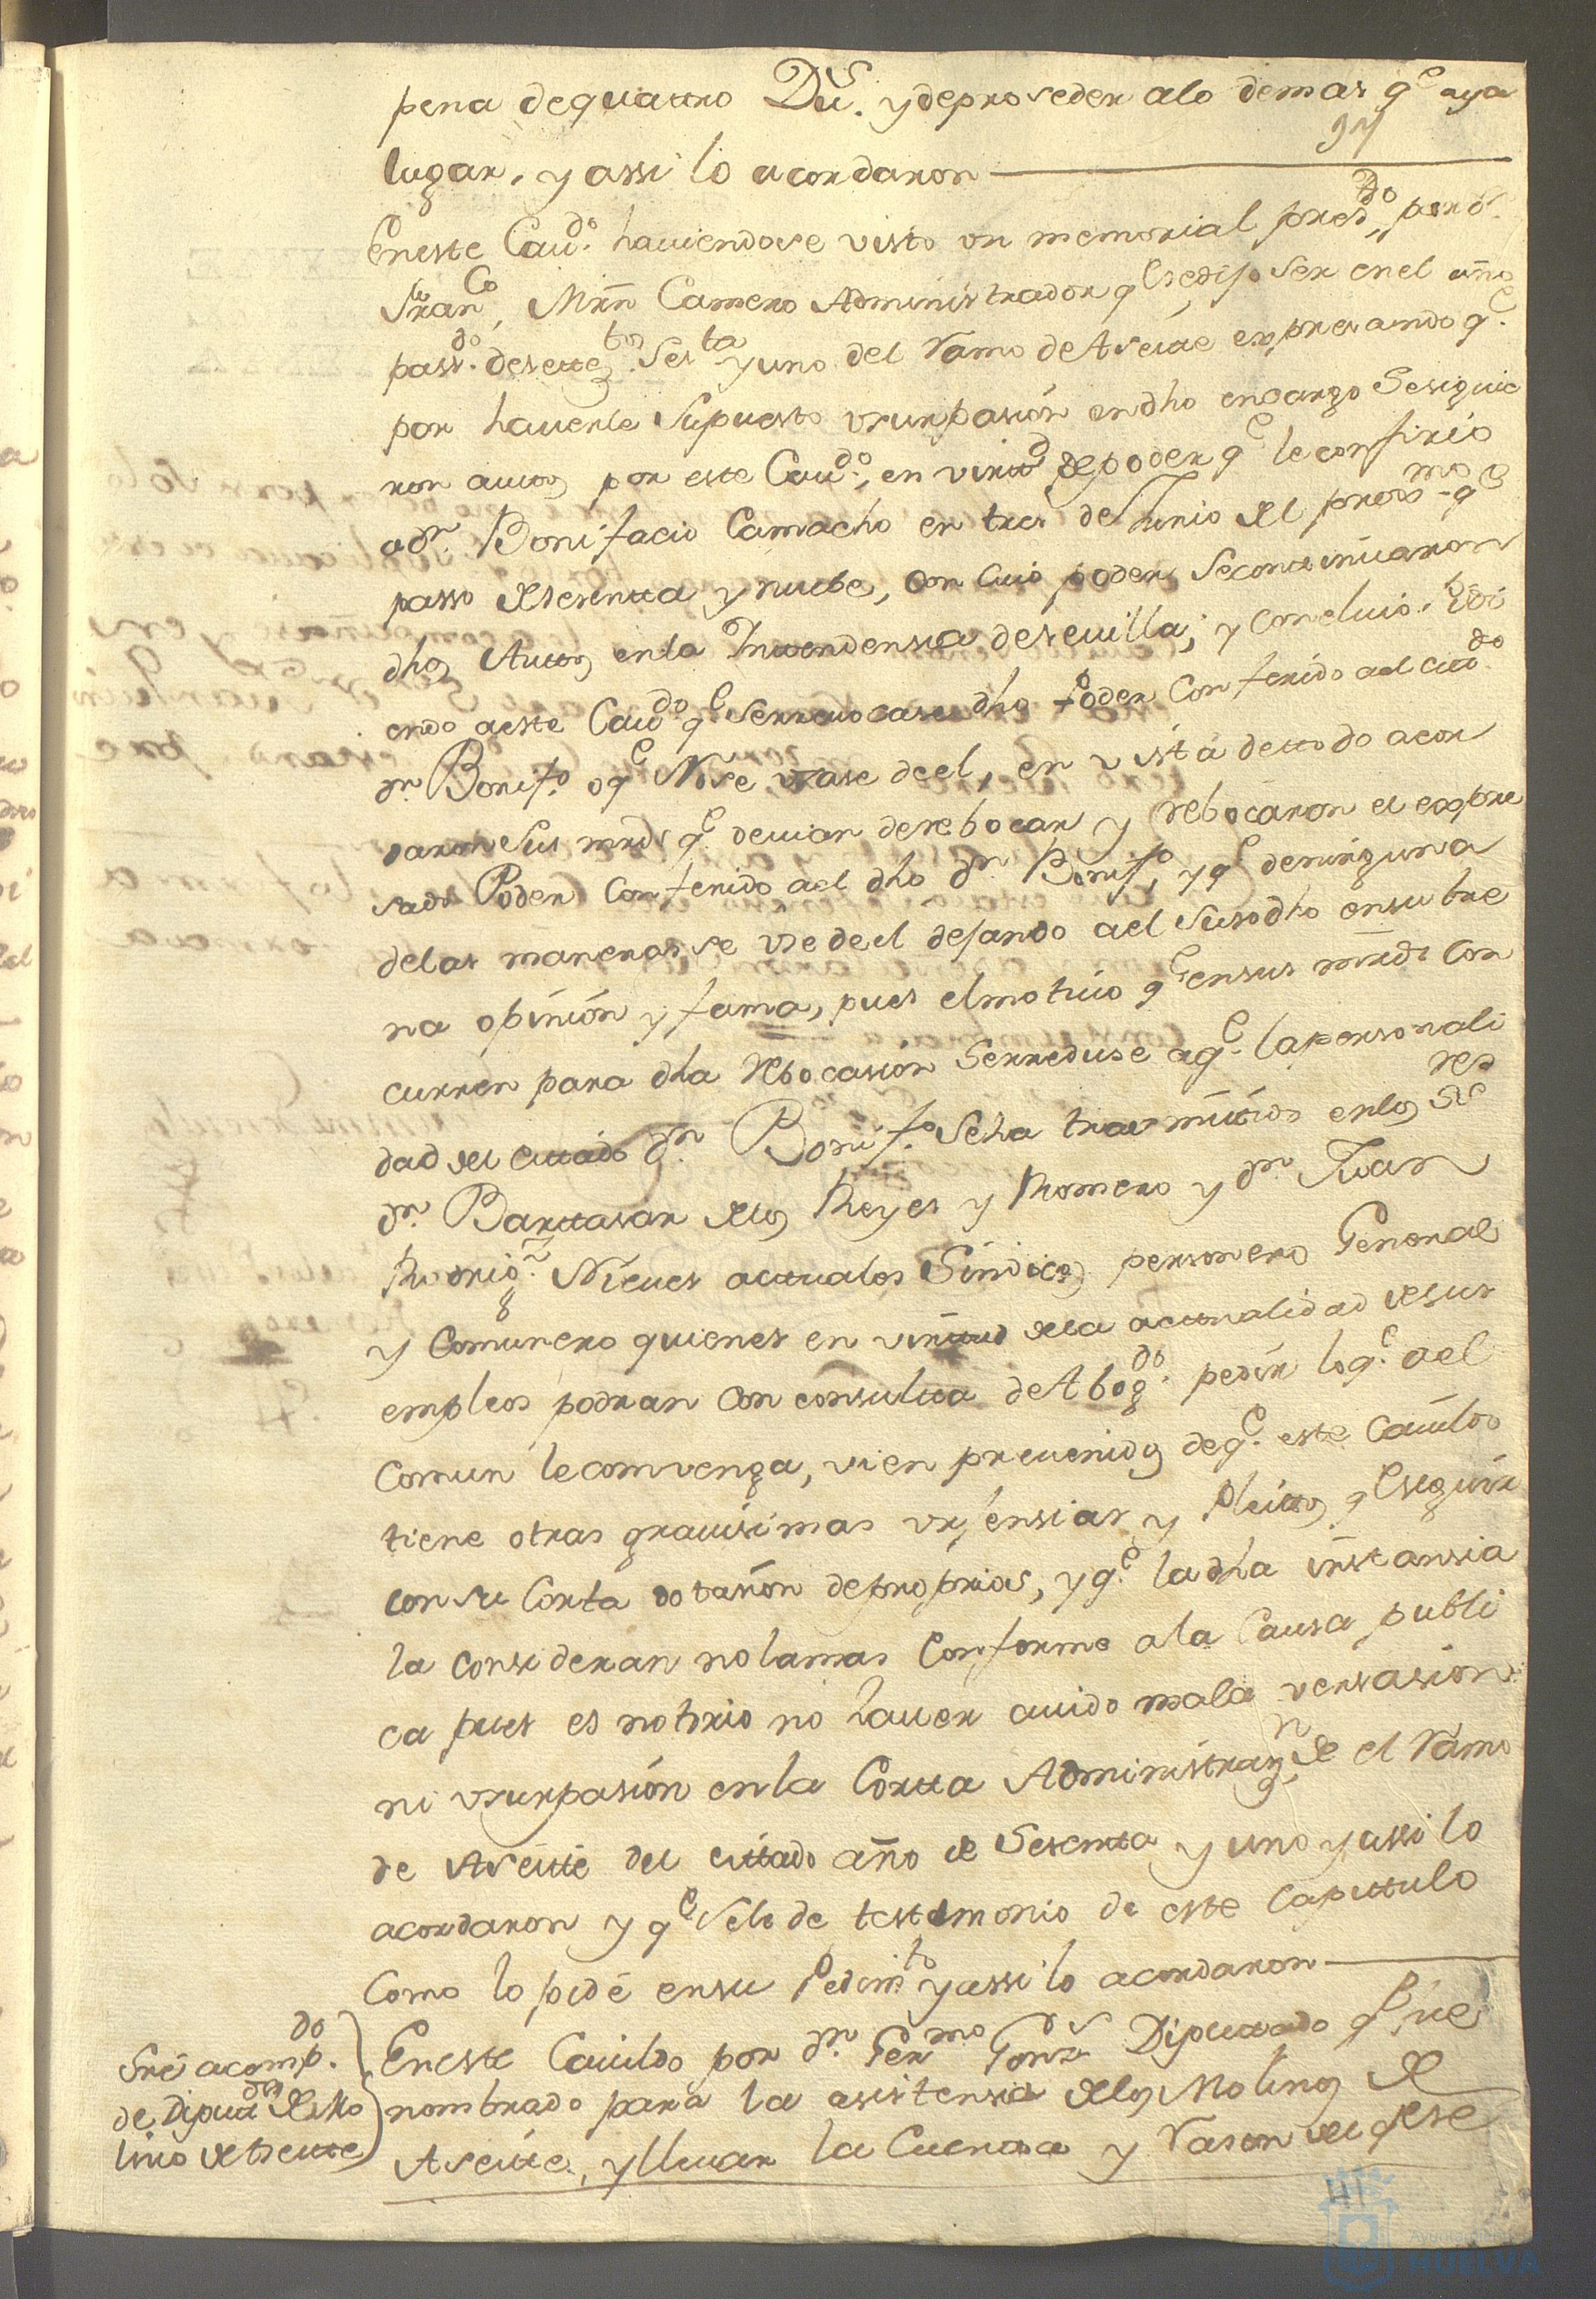 pena de quattro Du.s y de proseder alo demas q.e aya
lugar, y assi lo acordaron
En este Cau.do hauiendose visto un memorial pres.do por d.n
Fran.co Mrn Camero Administrador q.e se dijo ser en el año
pass.do de sette.tos ses.ta y uno del Ramo de Aseite expresando q.e
por hauerle supuesto usurpasion en dho encargo se siguie
ron autos por este Cau.do, en virtud de poder q.e le confirio
a d.n Bonifacio Camacho en tres de Junio del prox.mo q.e
passo de sesentta y nuebe, con cuio poder se continuaron
dhos Autos en la Intendensia de seuilla; y concluio pidi
endo a este Cau.do q.e se rreuocase dho Poder conferido a el cita.do
d.n Bonif.o o q.e No se usase de el, en vista de ttodo acor
daron sus mrds q.e deuian de rebocar y rebocaron el expre
sado Poder conferido a el dho d.n Bonif.o y q.e de ninguna
de las maneras se use de el dejando a el susodho en su bue
na opinion y fama, pues el motiuo q.e en sus mrds con
curren para dha rebocasion se rreduse a q.e la personali
dad del cittado d.n Bonif.o se ha trasmitido en los s.res
d.n Barttasar de los Reyes y Romero y d.n Juan
Rodrig.z Nieues actuales Sindicos personero General
y Comunero quienes en virttud de la actualidad de sus
empleos podran con consultta de Abog.do pedir lo q.e a el
comun le convenga, vien preuenidos de q.e este Cauildo
tiene otras grauisimas urjensias y Pleittos q.e seguir
con su corta dotasion de proprios, y q.e la dha instansia
la consideran no la mas conforme a la Causa publi
ca pues es notorio no hauer auido mala versasion
ni usurpasion en la Cortta Administraz.n de el Ramo
de Aseitte del cittado año de Sesentta y uno y assi lo
acordaron y q.e se le de testimonio de este Capittulo
Como lo pide en su Pedim.to y assi lo acordaron
En este Cauildo por d.n Ger.mo Gonz.s Diputtado q.e fue
nombrado para la asistensia de los Molinos de
Aseitte, y lleuar la Cuentta y Rason de el q.e se
Sre acomp.do
de Diputa.dos de Mo
lino de Aseitte
41
Ayuntamiento
HUELVA